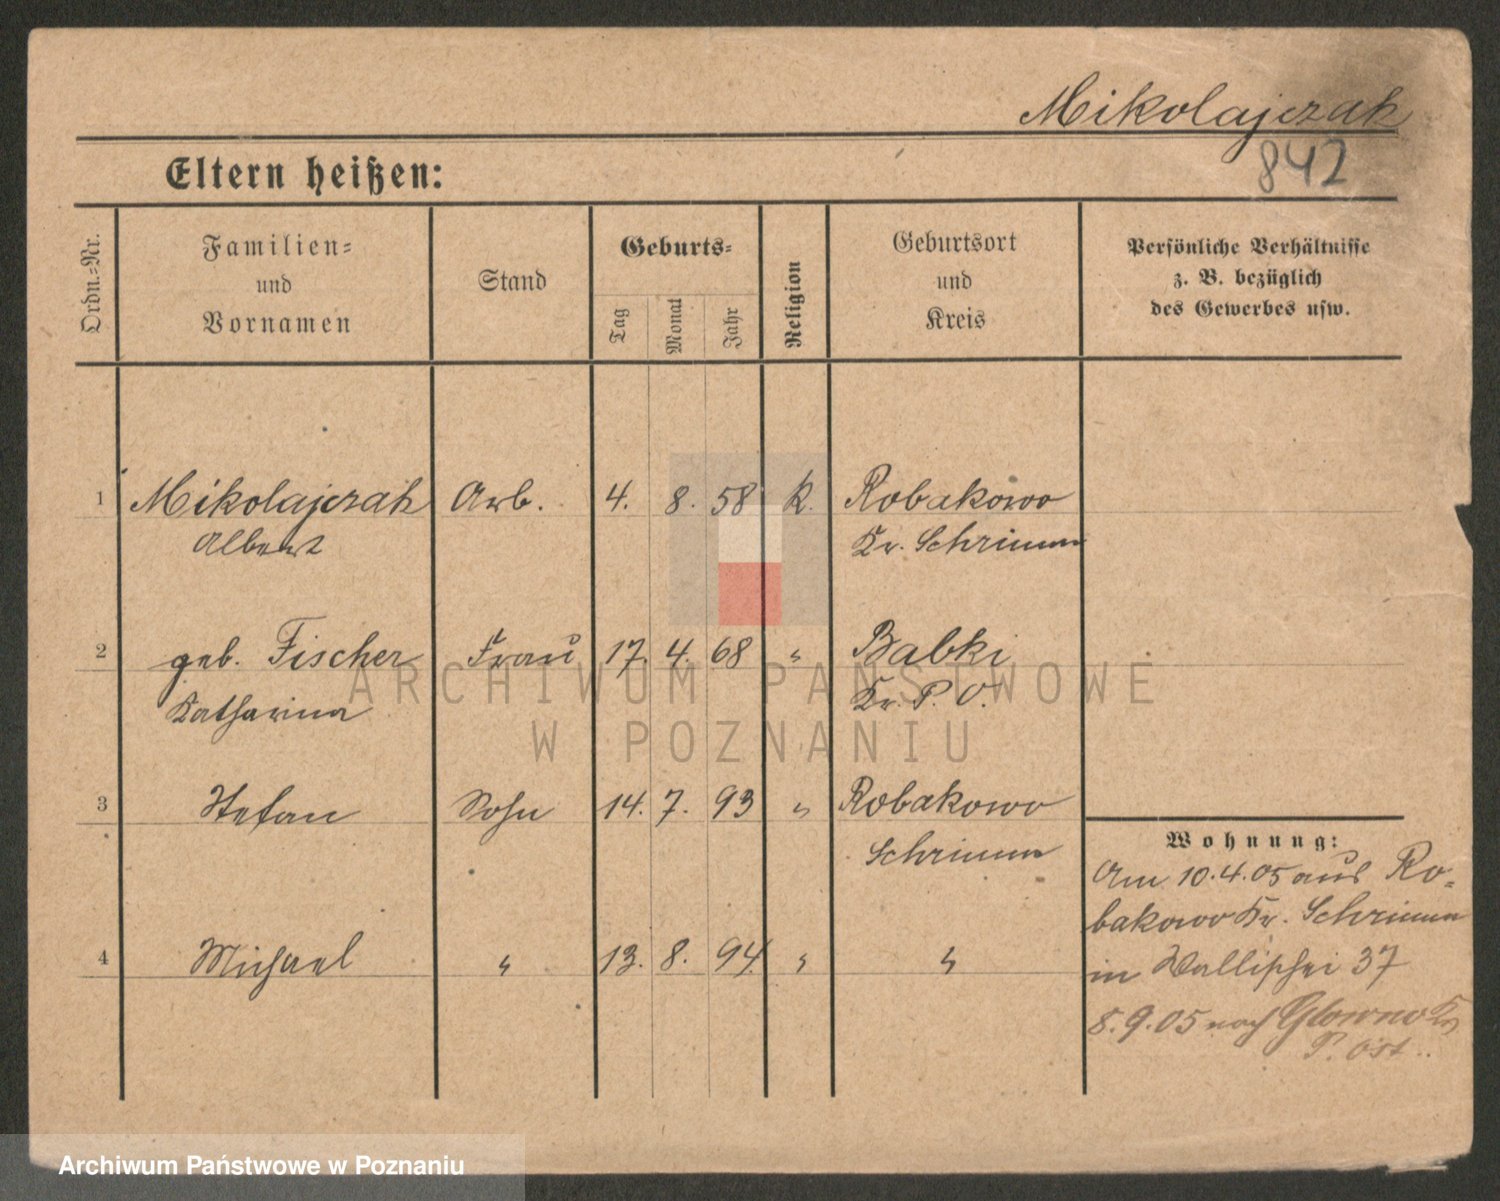 Mikolajczak
842
Eltern heißen:
Ordn.=Nr.
Familien=
und
Vornamen
Stand
Geburts=
Tag
Monat
Jahr
Religion
Geburtsort
und
Kreis
Persönliche Verhältnisse
z. B. bezüglich
des Gewerbes usw.
1 Mikolajczak Arb. 4. 8. 58 k. Robakowo
Albert Kr. Schrimm
2 geb. Fischer Frau 17. 4. 68 " Babki
Katharina Kr. P. O.
3 Stefan Sohn 14. 7. 93 " Robakowo
Schrimm
4 Michael " 13. 8. 94 " "
Wohnung:
Am 10.4.05 aus Ro=
bakowo Kr. Schrimm
in Wallischei 37
8.9.05 nach Glowno Kr
P. Ost..
ARCHIWUM PAŃSTWOWE
W POZNANIU
Archiwum Państwowe w Poznaniu